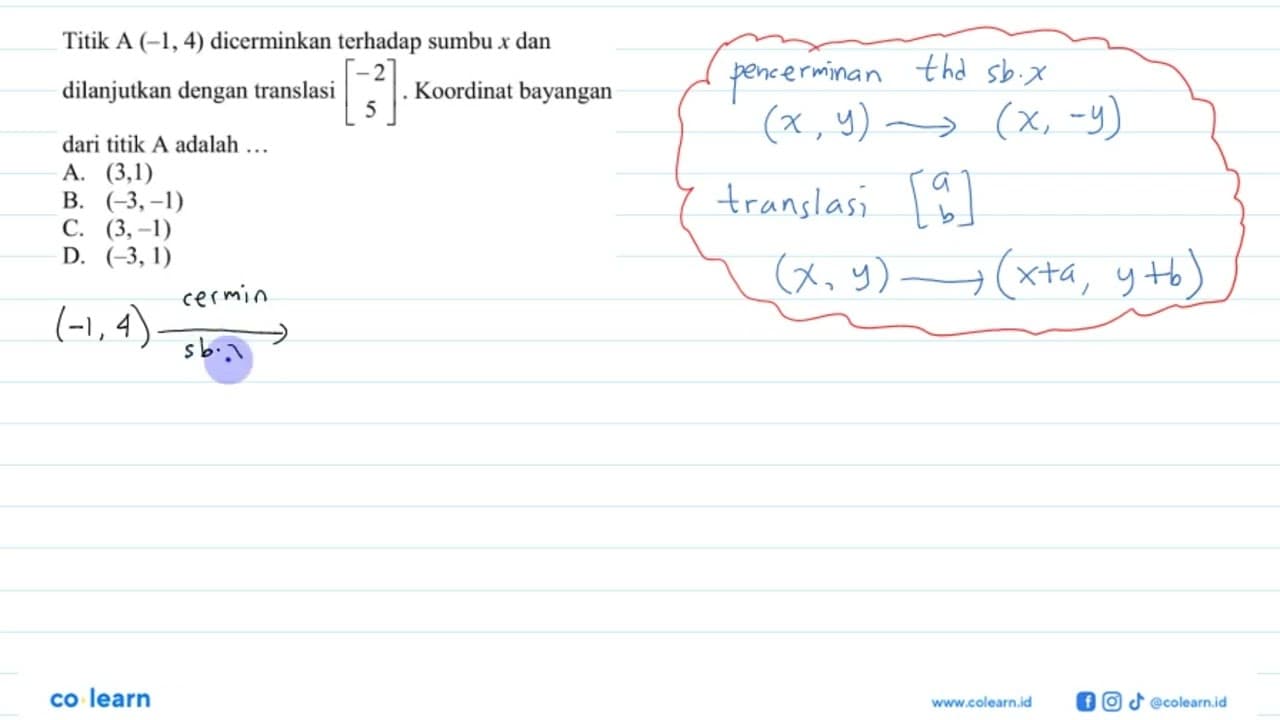 Titik A (–1, 4) dicerminkan terhadap sumbu x dan
dilanjutkan dengan translasi [−2 5]. Koordinat bayangan
dari titik A adalah …
A. (3,1)
B. (–3, –1)
C. (3, –1)
D. (–3, 1)
(-1, 4) cermin sb.
pencerminan thd sb.x
(x, y) → (x, -y)
translasi [a b]
(x, y) → (x+a, y+b)
co learn
www.colearn.id
@colearn.id